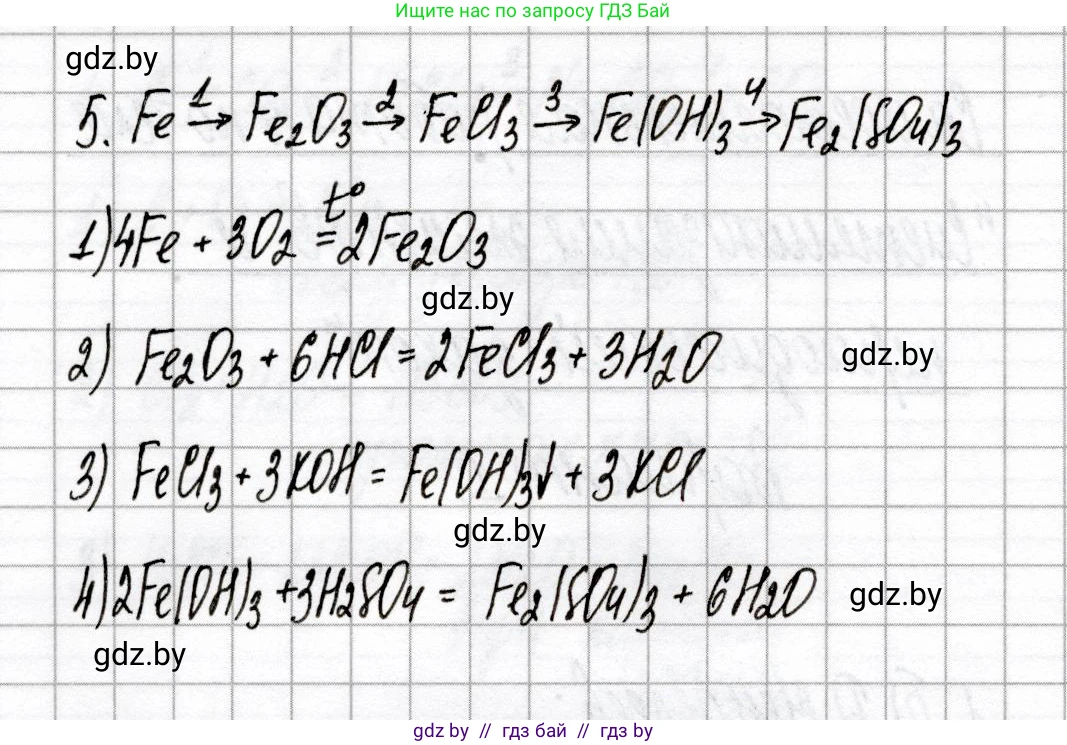 Ищите нас по запросу ГДЗ Бай
gdz.by
5. Fe →¹ Fe₂O₃ →² FeCl₃ →³ Fe(OH)₃ →⁴ Fe₂(SO₄)₃
t°
1) 4Fe + 3O₂ = 2Fe₂O₃
gdz.by
2) Fe₂O₃ + 6HCl = 2FeCl₃ + 3H₂O gdz.by
3) FeCl₃ + 3KOH = Fe(OH)₃↓ + 3KCl
gdz.by
4) 2Fe(OH)₃ + 3H₂SO₄ = Fe₂(SO₄)₃ + 6H₂O gdz.by
gdz.by
gdz by // гдз бай // гдз by